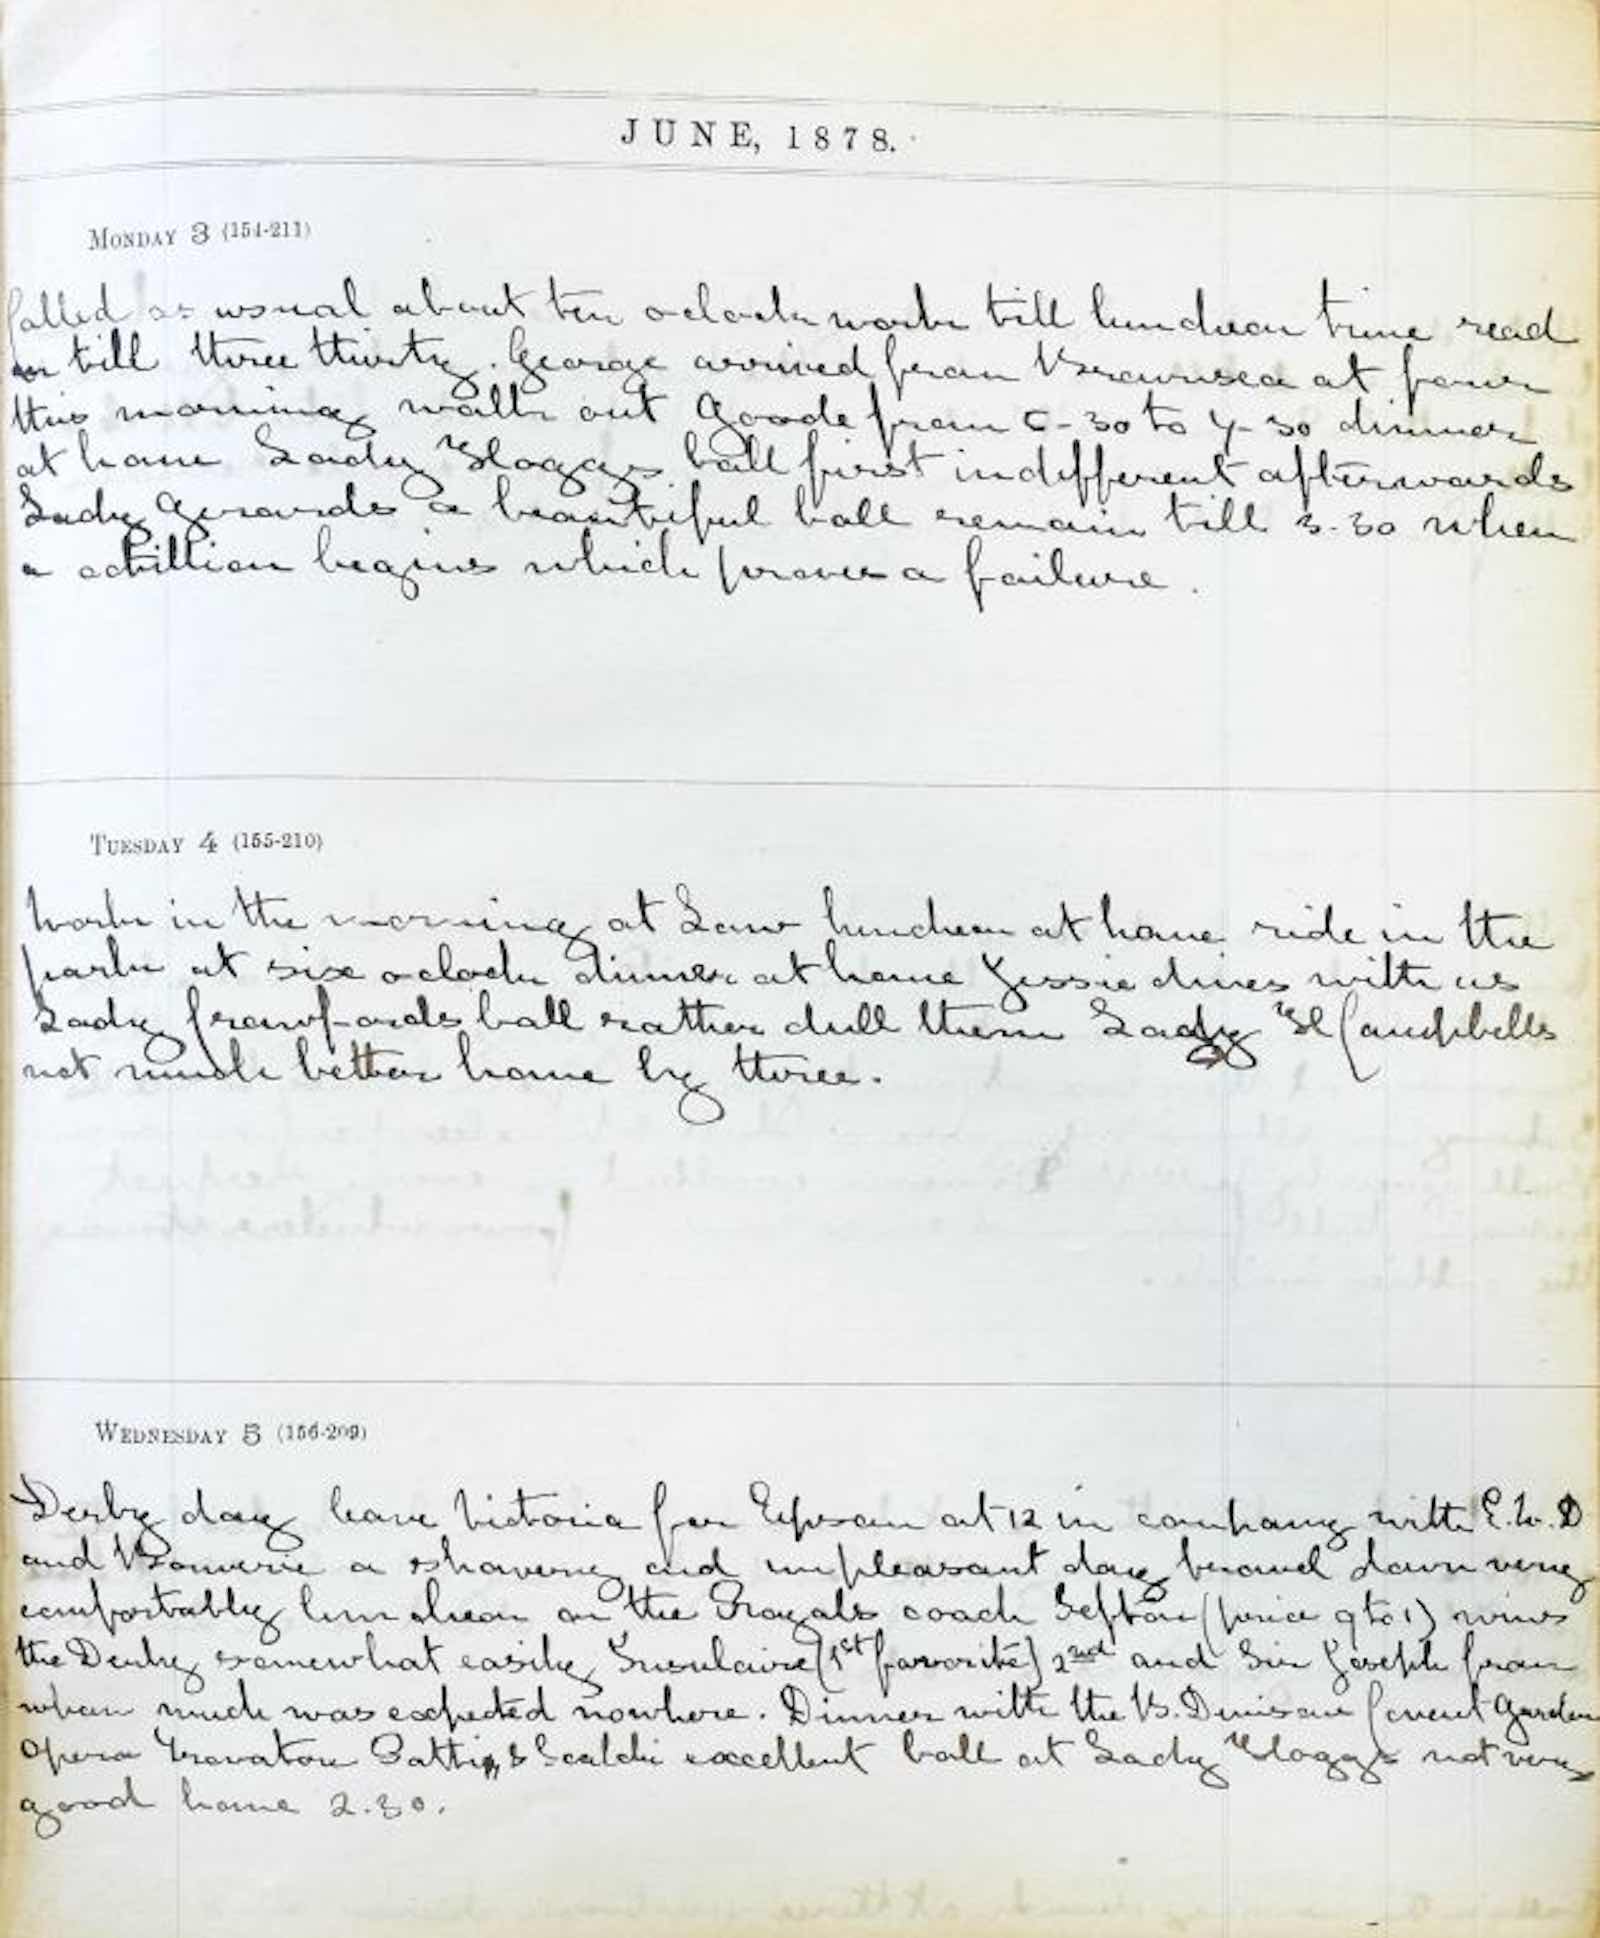 JUNE, 1878.
MONDAY 3 (154-211)
Called as usual about ten oclock work till luncheon time read
on till three thirty. George arrived from Brownsea at four
this morning walk out Goode from 6-30 to 7-30 dinner
at home Lady Hoggs ball first indifferent afterwards
Lady Gerards a beautiful ball remain till 3-30 when
a cotillion begins which proves a failure.
TUESDAY 4 (155-210)
Work in the morning at Law luncheon at home ride in the
park at six oclock dinner at home Jessie dines with us
Lady Crawfords ball rather dull then Lady H Campbells
not much better home by three.
WEDNESDAY 5 (156-209)
Derby day leave Victoria for Epsom at 12 in company with E.W.D
and a showery and unpleasant day down very
comfortably luncheon on the Royals coach Sefton (price 9 to 1) wins
the Derby somewhat easily Insulaire (1st favorite) 2nd and Sir Joseph from
whom much was expected nowhere. Dinner with the B. Denison Covent Garden
Opera Trovatore Patti & Scalchi excellent ball at Lady Hoggs not very
good home 2.30.